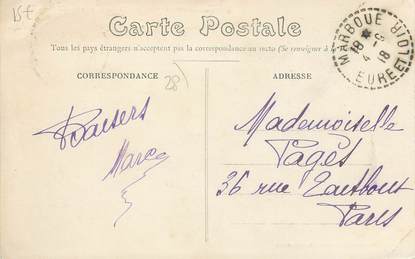 15€
Carte Postale
Tous les pays étrangers n'acceptent pas la correspondance au recto (Se renseigner à la
CORRESPONDANCE
28
ADRESSE
MARBOUE
18 *
4 - 9
18
EURE ET LOIR
Baisers
Marc
Mademoiselle
Pagès
36 rue Taitbout
Paris